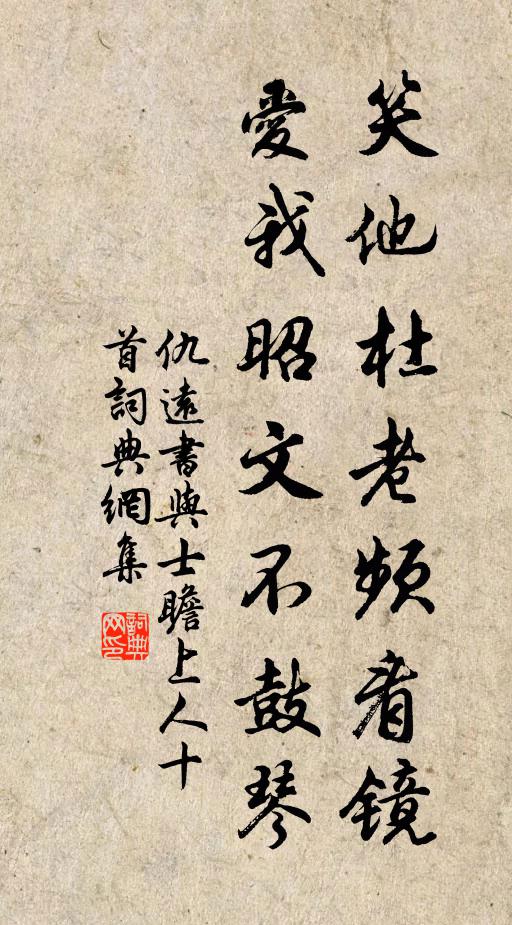 笑他杜老频看镜
愛我昭文不鼓琴
仇遠書與士瞻上人十
首詞典網集
詞典
网印